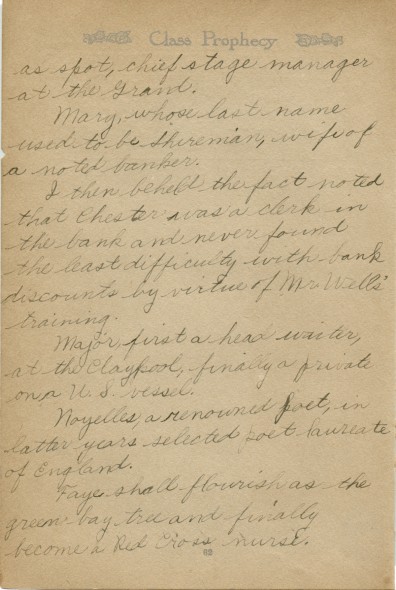 Class Prophecy
as spot, chief stage manager
at the Grand.
Mary, whose last name
used to be Shireman, wife of
a noted banker.
I then beheld the fact noted
that Chester was a clerk in
the bank and never found
the least difficulty with bank
discounts by virtue of Mr. Wells'
training.
Major, first a head waiter,
at the Claypool, finally a private
on a U.S. vessel.
Noyelles, a renouned poet, in
latter years selected poet laureate
of England.
Faye shall flourish as the
green bay tree and finally
become a Red Cross nurse.